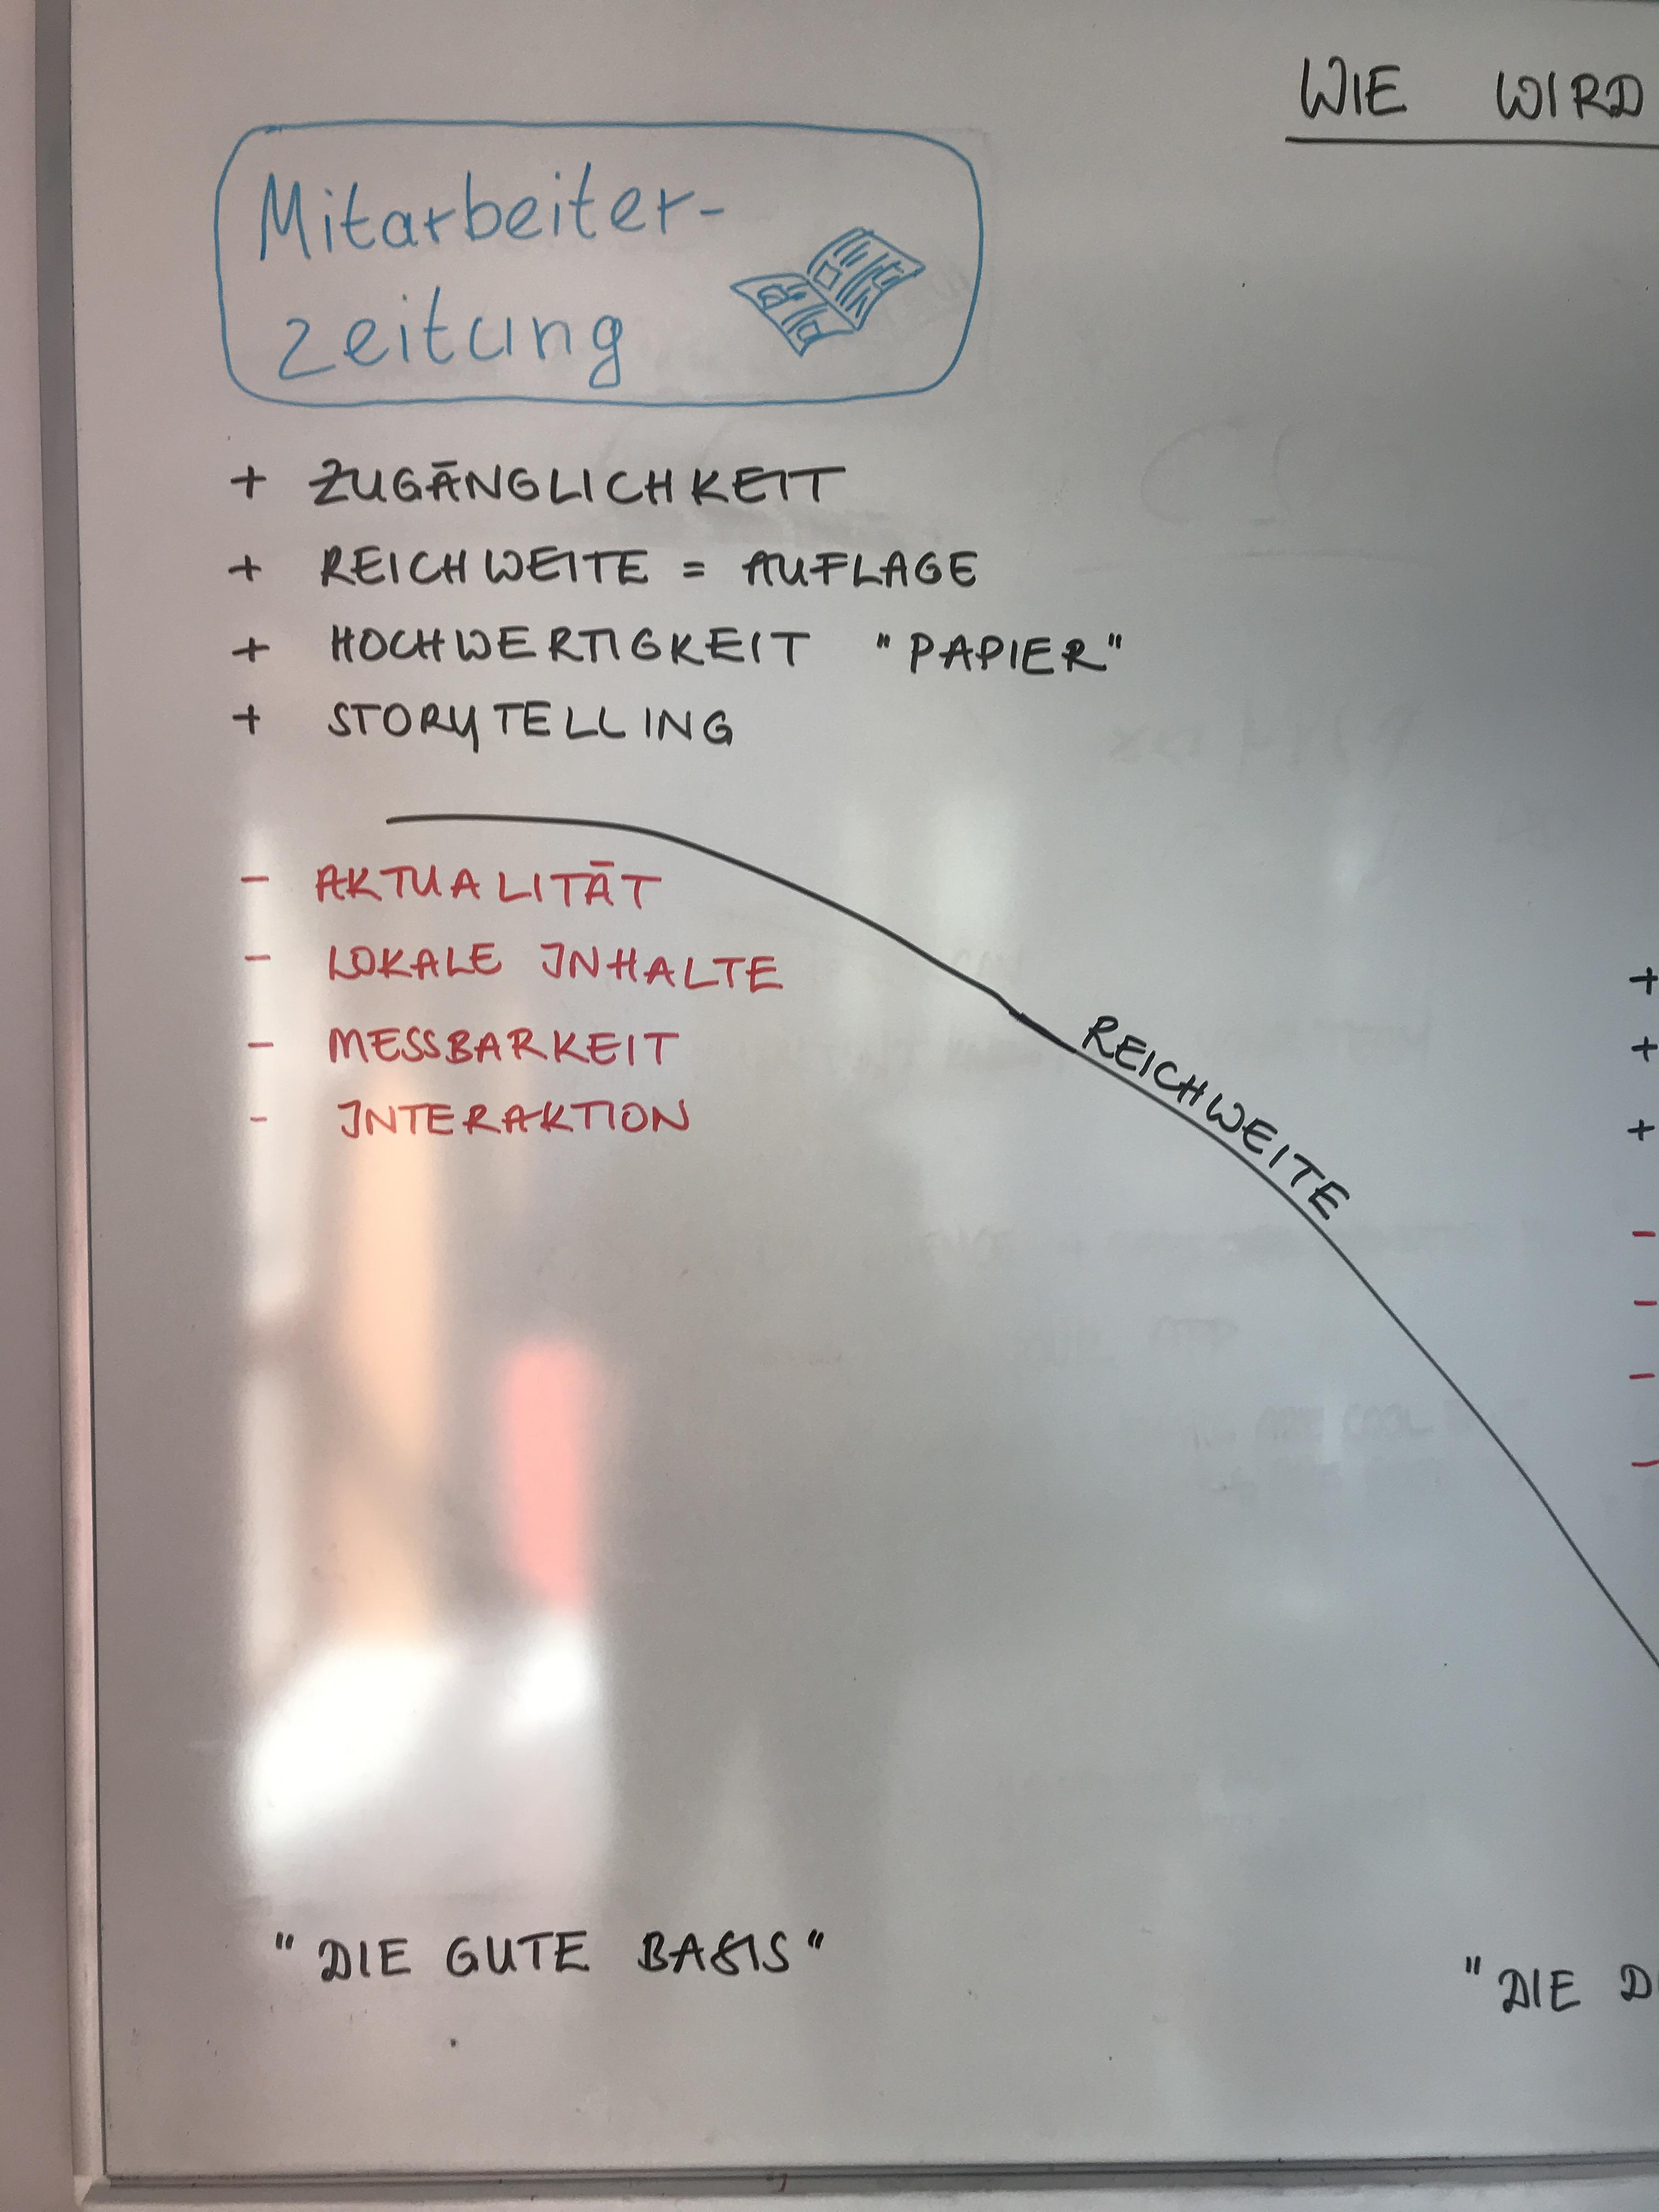 WIE WIRD
Mitarbeiter-
zeitung
+ ZUGÄNGLICHKEIT
+ REICHWEITE = AUFLAGE
+ HOCHWERTIGKEIT "PAPIER"
+ STORYTELLING
- AKTUALITÄT
- LOKALE INHALTE
- MESSBARKEIT
- INTERAKTION
REICHWEITE
+
+
+
-
-
-
-
"DIE GUTE BASIS"
"DIE D